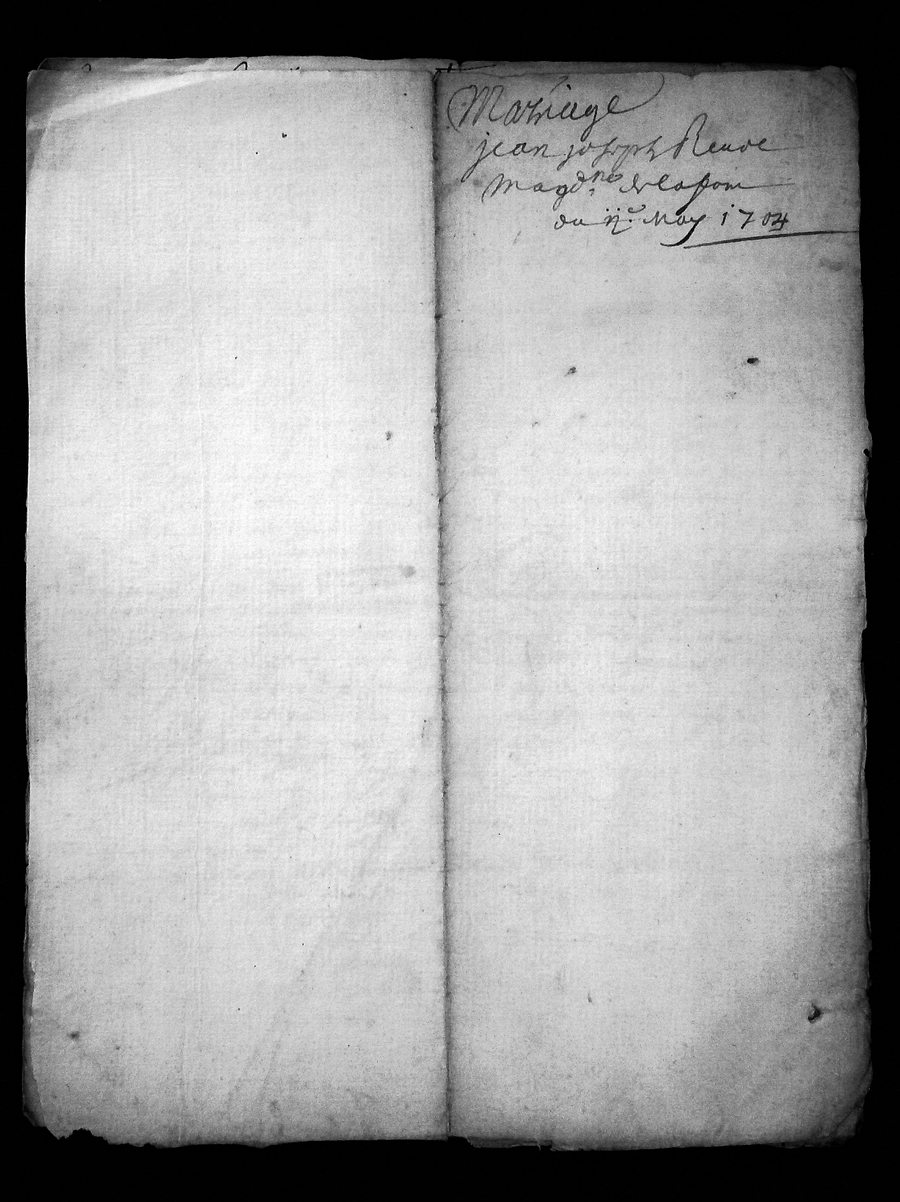 Mariage
jean joseph Reude
Magd.ne delafon
du May 1704